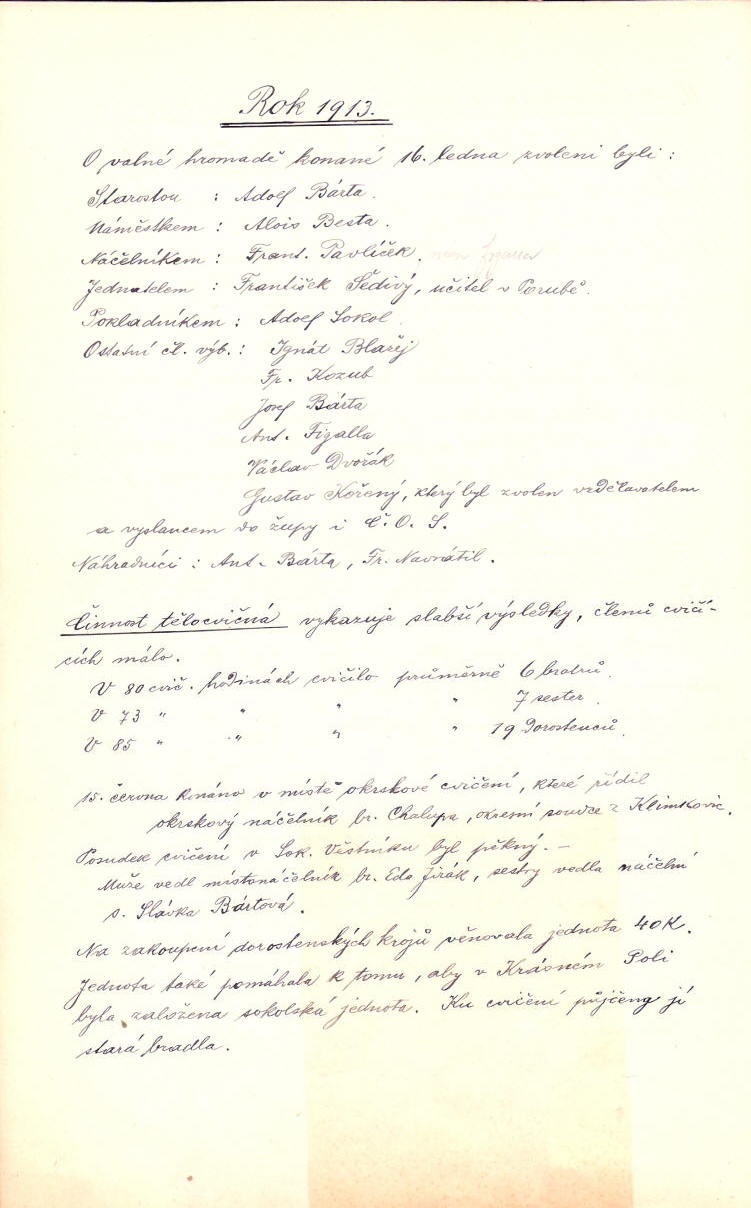 Rok 1913.
O valné hromadě konané 16. ledna zvoleni byli :
Starostou : Adolf Bárta.
Náměstkem : Alois Besta.
Náčelníkem : Frant. Pavlíček.
Jednatelem : František Šedivý, učitel v Porubě.
Pokladníkem : Adolf Sokol.
Ostatní čl. výb. : Ignát Blažej
Fr. Kozub
Josef Bárta
Ant. Figalla
Václav Dvořák
Gustav Kořený, který byl zvolen vzdělavatelem
a vyslancem do župy i Č. O. S.
Náhradníci : Ant. Bárta, Fr. Navrátil.
Činnost tělocvičná vykazuje slabší výsledky, členů cvičí-
cích málo.
V 80 cvič. hodinách cvičilo průměrně 6 bratrů.
V 73 " " " " 7 sester
V 85 " " " " 19 dorostenců.
15. června konáno v místě okrskové cvičení, které řídil
okrskový náčelník br. Chalupa, okresní soudce z Klimkovic.
Posudek cvičení v Sok. Věstníku byl pěkný. –
Muže vedl místonáčelník br. Eda Jirák, sestry vedla náčelní
s. Slávka Bártová.
Na zakoupení dorostenských krojů věnovala jednota 40 K.
Jednota také pomáhala k tomu, aby v Krásném Poli
byla založena sokolská jednota. Ku cvičení půjčeny jí
stará bradla.